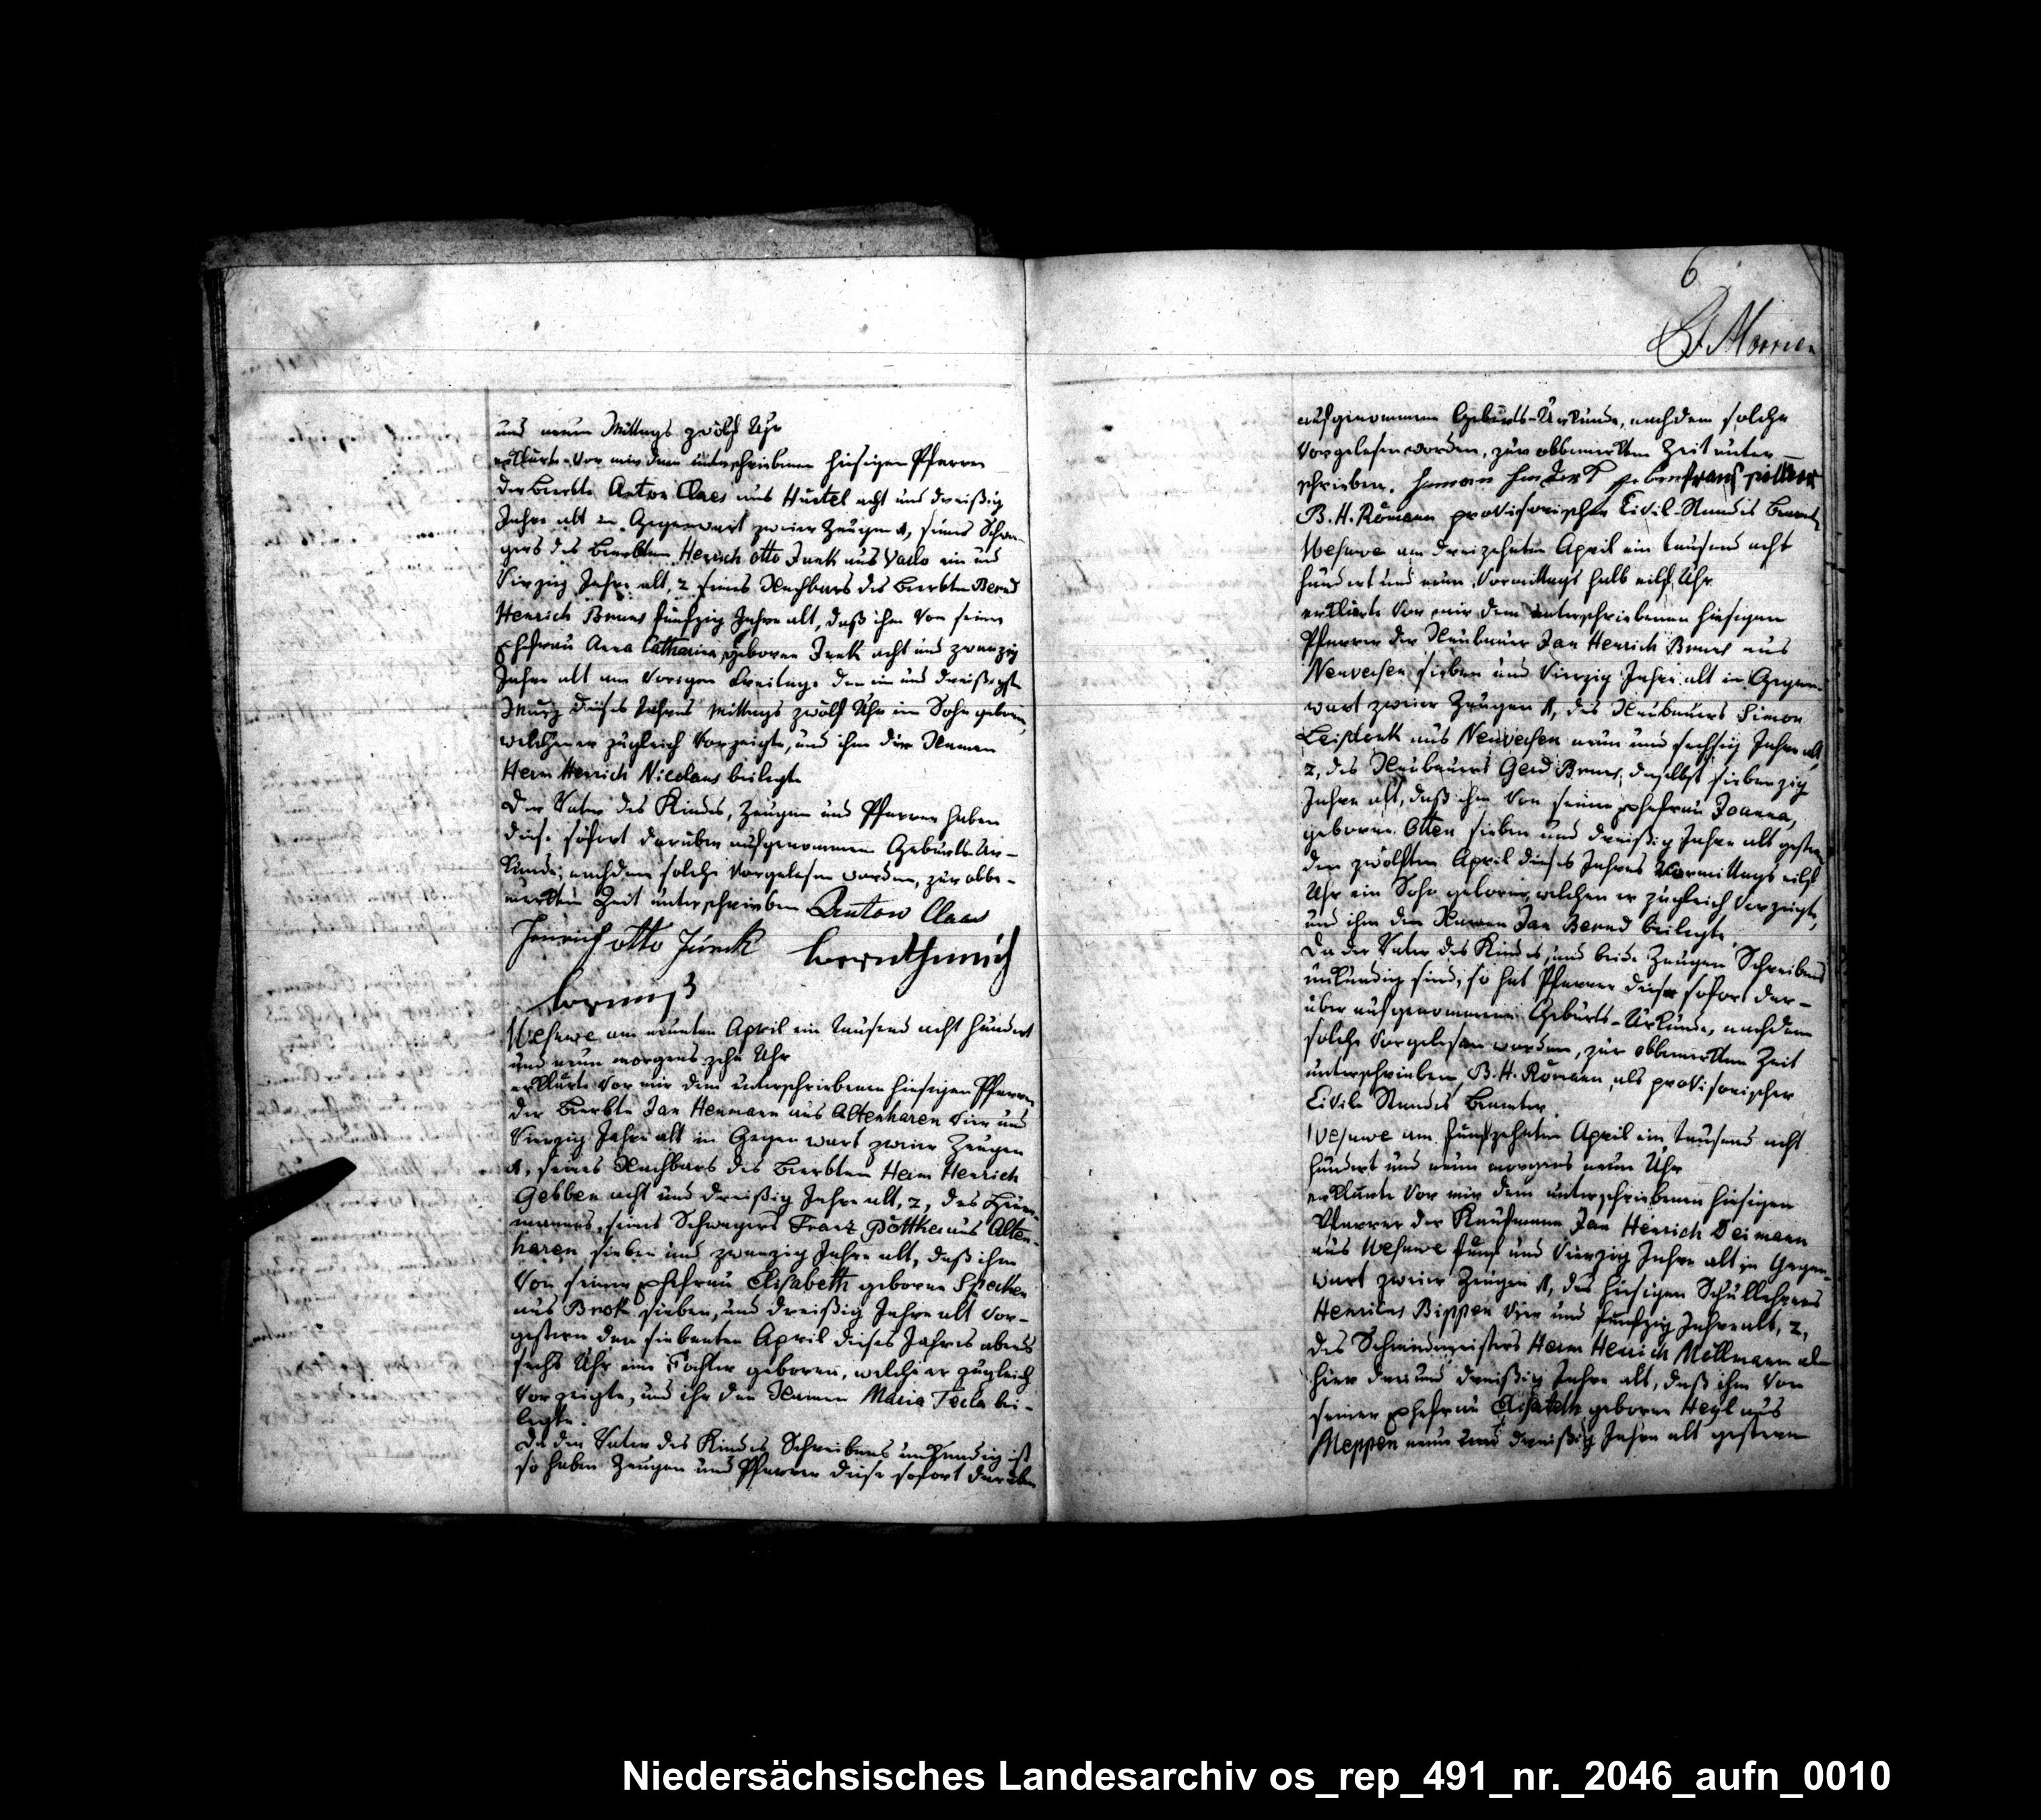 und neun Mittags zwölf Uhr
erklärte vor mir dem unterschriebenen hiesigen Pfarrer
der Beerbte Anton Claes aus Huntel acht und dreißig
Jahre alt in Gegenwart zweier Zeugen 1, seines Schwa-
gers des Beerbten Henrich Otto Junk aus Vaelo ein und
Vierzig Jahre alt, 2 seines Nachbars des Beerbten Bernd
Henrich Bruns fünfzig Jahre alt, daß ihm von seiner
Ehefrau Anna Catharina, geborne Junk acht und zwanzig
Jahre alt am vorigen Freitage den ein und dreißigsten
März dieses Jahres Mittags zwölf Uhr ein Sohn geboren,
welchen er zugleich vorzeigte, und ihm die Namen
Herm Henrich Nicolaus beilegte
Der Vater des Kindes, Zeugen und Pfarrer haben
diese sofort darüber aufgenommene Geburts-Ur-
kunde, nachdem solche vorgelesen worden, zur obbe-
merkten Zeit unterschrieben Anton Claas
Henrich otto Junck Berenthenrich
Brunß
Wesuwe am neunten April ein tausend acht hundert
und neun morgens zehn Uhr
erklärte vor mir dem unterschriebenen hiesigen Pfarrer
der Beerbte Jan Henmann aus Altenharen vier und
Vierzig Jahre alt in Gegenwart zweier Zeugen
1, seines Nachbars des Beerbten Herm Henrich
Gebben acht und dreißig Jahre alt, 2, des Heuer-
manns, seines Schwagers Franz Pöttker aus Alten-
haren sieben und zwanzig Jahre alt, daß ihm
von seiner Ehefrau Elisabeth geborne Specken
aus Brok sieben und dreißig Jahre alt vor-
gestern den siebenten April dieses Jahres abends
sechs Uhr eine Tochter geboren, welche er zugleich
vorzeigte, und ihr den Namen Maria Tecla bei-
legte.
Da der Vater des Kindes Schreibens unkundig ist
so haben Zeugen und Pfarrer diese sofort darüber
6
aufgenommene Geburts-Urkunde, nachdem solche
vorgelesen worden, zur obbemerkten Zeit unter-
schrieben.
B. H. Römann provisorischer Civil-Standes Beamter
Wesuwe am dreizehnten April ein tausend acht
hundert und neun Vormittags halb eilf Uhr
erklärte vor mir dem unterschriebenen hiesigen
Pfarrer der Neubauer Jan Henrich Bruns aus
Neuversen sieben und Vierzig Jahre alt in Gegen-
wart zweier Zeugen 1, des Neubauers Simon
aus Neuversen neun und sechzig Jahre alt
2, des Neubauers Gerd Bruns daselbst siebenzig
Jahre alt, daß ihm von seiner Ehefrau Joanna,
geborne Otten sieben und dreißig Jahre alt gestern
den zwölften April dieses Jahres Vormittags eilf
Uhr ein Sohn geboren, welchen er zugleich vorzeigte,
und ihm den Namen Jan Bernd beilegte.
Da der Vater des Kindes, und beide Zeugen Schreibens
unkundig sind, so hat Pfarrer diese sofort dar-
über aufgenommene Geburts-Urkunde, nachdem
solche vorgelesen worden, zur obbemerkten Zeit
unterschrieben B. H. Römann als provisorischer
Civil-Standes Beamter.
Wesuwe am fünfzehnten April ein tausend acht
hundert und neun morgens neun Uhr
erklärte vor mir dem unterschriebenen hiesigen
Pfarrer der Kaufmann Jan Henrich Deimann
aus Wesuwe fünf und Vierzig Jahre alt in Gegen-
wart zweier Zeugen 1, des hiesigen Schullehrers
Henricus Bippen vier und fünfzig Jahre alt, 2,
des Schmiedmeisters Herm Henrich Möllmann al-
hier drei und dreißig Jahre alt, daß ihm von
seiner Ehefrau Elisabeth geborne Heyl aus
Meppen neun und dreißig Jahre alt gestern
Niedersächsisches Landesarchiv os_rep_491_nr._2046_aufn_0010